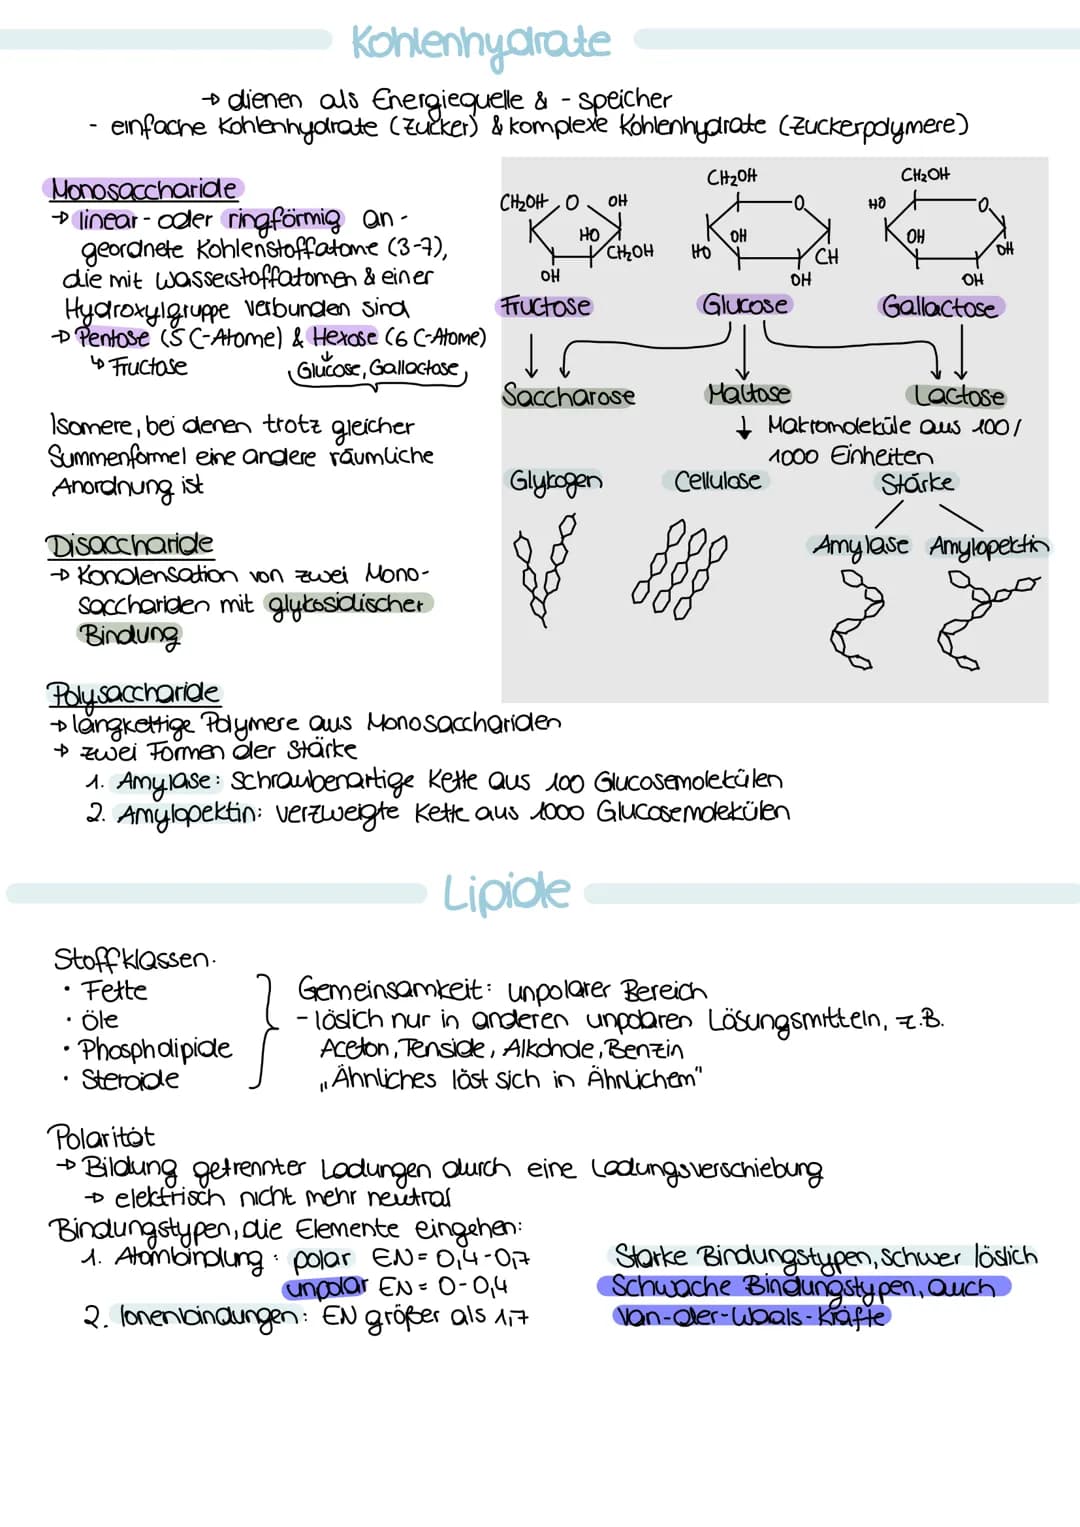 Kohlenhydrate
→ dienen als Energiequelle & - speicher
- einfache Kohlenhydrate (Zucker) & komplexe Kohlenhydrate (Zuckerpolymere)
Monosaccharide
→ linear- oder ringförmig an-
geordnete Kohlenstoffatome (3-7),
die mit Wasserstoffatomen & einer
Hydroxylgruppe verbunden sind
→ Pentose (5 C-Atome) & Hexose (6 C-Atome)
↳ Fructose
Glucose, Gallactose
Isomere, bei denen trotz gleicher
Summenformel eine andere räumliche
Anordnung ist
Disaccharide
→ Kondensation von zwei Mono-
sacchariden mit glykosidischer
Bindung
CH₂OH O OH
HO
CH₂OH
OH
Fructose
CH₂OH
O
OH
HO
CH
OH
Glucose
CH₂OH
HO
O
OH
OH
OH
Gallactose
Saccharose
Maltose
Lactose
↓ Makromoleküle aus 100/
1000 Einheiten
Glykogen
Cellulose
Stärke
Amylase
Amylopektin
Polysaccharide
→ langkettige Polymere aus Monosacchariden
→ zwei Formen der Stärke
1. Amylase: Schraubenartige Kette aus 100 Glucosemolekülen
2. Amylopektin: verzweigte Kette aus 1000 Glucosemolekülen
Lipide
Stoffklassen.
• Fette
• Öle
• Phospholipide
• Steroide
Gemeinsamkeit: unpolarer Bereich
- löslich nur in anderen unpolaren Lösungsmitteln, z.B.
Aceton, Tenside, Alkohole, Benzin
„Ähnliches löst sich in Ähnlichem"
Polarität
→ Bildung getrennter Ladungen durch eine Ladungsverschiebung
→ elektrisch nicht mehr neutral
Bindungstypen, die Elemente eingehen:
1. Atombindung: polar EN = 0,4-0,7
unpolar EN = 0-0,4
2. Ionenbindungen: EN größer als 1,7
Starke Bindungstypen, schwer löslich
Schwache Bindungstypen, auch
Van-der-Waals-Kräfte